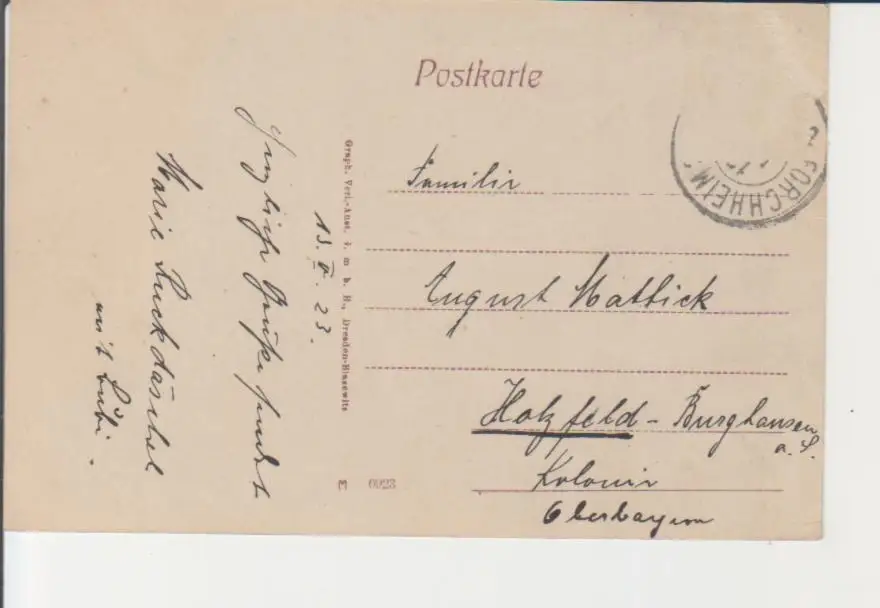 Postkarte
FORCHHEIM
13. V. 23.
Herzliche Grüße sendet
Marie Ruckdäschel
mit Bubi.
Graph. Verl.-Anst. G. m. b. H., Dresden-Blasewitz
M 0023
Familie
August Mattick
Holzfeld - Burghausen
a. S.
Kolonie
Oberbayern